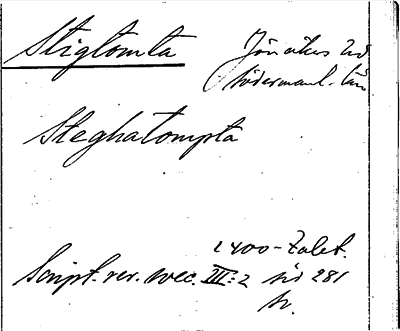 Stigtomta Jönåkers hd
Södermanl. län
Steghatompta
1400-talet.
Script. rer. svec. III:2 sid 281
h.